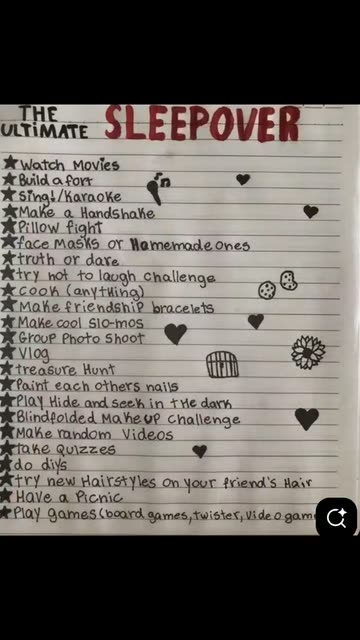 THE ULTIMATE SLEEPOVER
Watch Movies
Build a fort
Sing!/Karaoke
Make a Handshake
Pillow fight
face Masks or Homemade ones
truth or dare
try not to laugh challenge
cook (anything)
Make friendship bracelets
Make cool slo-mos
Group Photo shoot
Vlog
treasure Hunt
Paint each others nails
Play Hide and seek in the dark
Blindfolded Makeup challenge
Make random Videos
take Quizzes
do diys
try new Hairstyles on your friend's Hair
Have a Picnic
Play games (board games, twister, video gam